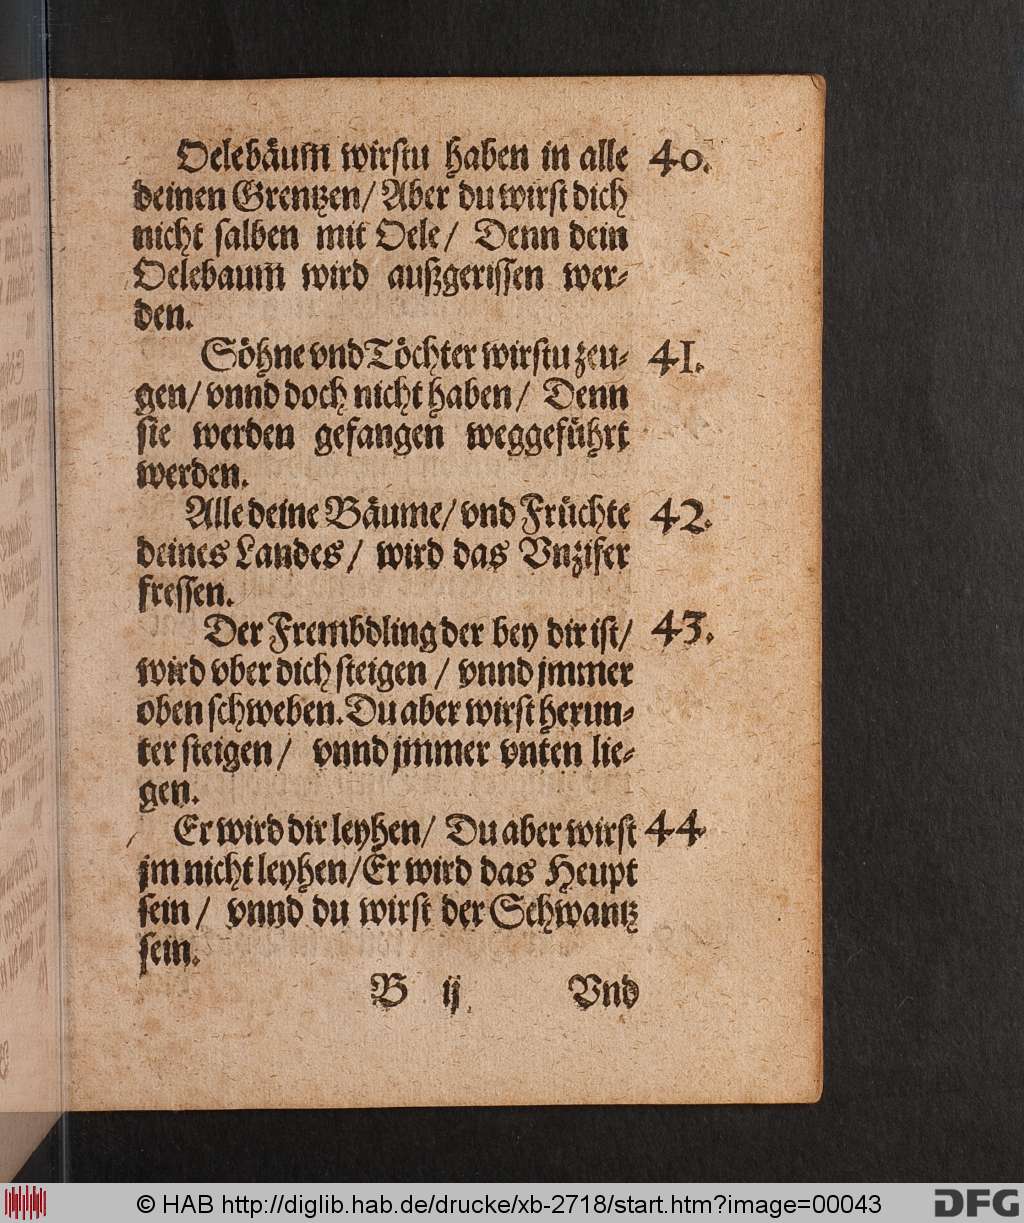 Oelebäum wirstu haben in alle 40.
deinen Grentzen/ Aber du wirst dich
nicht salben mit Oele/ Denn dein
Oelebaum wird außgerissen wer-
den.
Söhne vnd Töchter wirstu zeu- 41.
gen/ vnnd doch nicht haben/ Denn
sie werden gefangen weggeführt
werden.
Alle deine Bäume/ vnd Früchte 42.
deines Landes/ wird das Vnzifer
fressen.
Der Frembdling der bey dir ist/ 43.
wird vber dich steigen / vnnd jmmer
oben schweben. Du aber wirst herun-
ter steigen/ vnnd jmmer vnten lie-
gen.
Er wird dir leyhen/ Du aber wirst 44
jm nicht leyhen/ Er wird das Heupt
sein / vnnd du wirst der Schwantz
sein.
B ij Vnd
© HAB http://diglib.hab.de/drucke/xb-2718/start.htm?image=00043 DFG